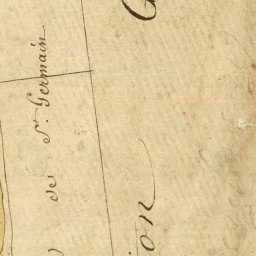 de St. Germain
ion
G